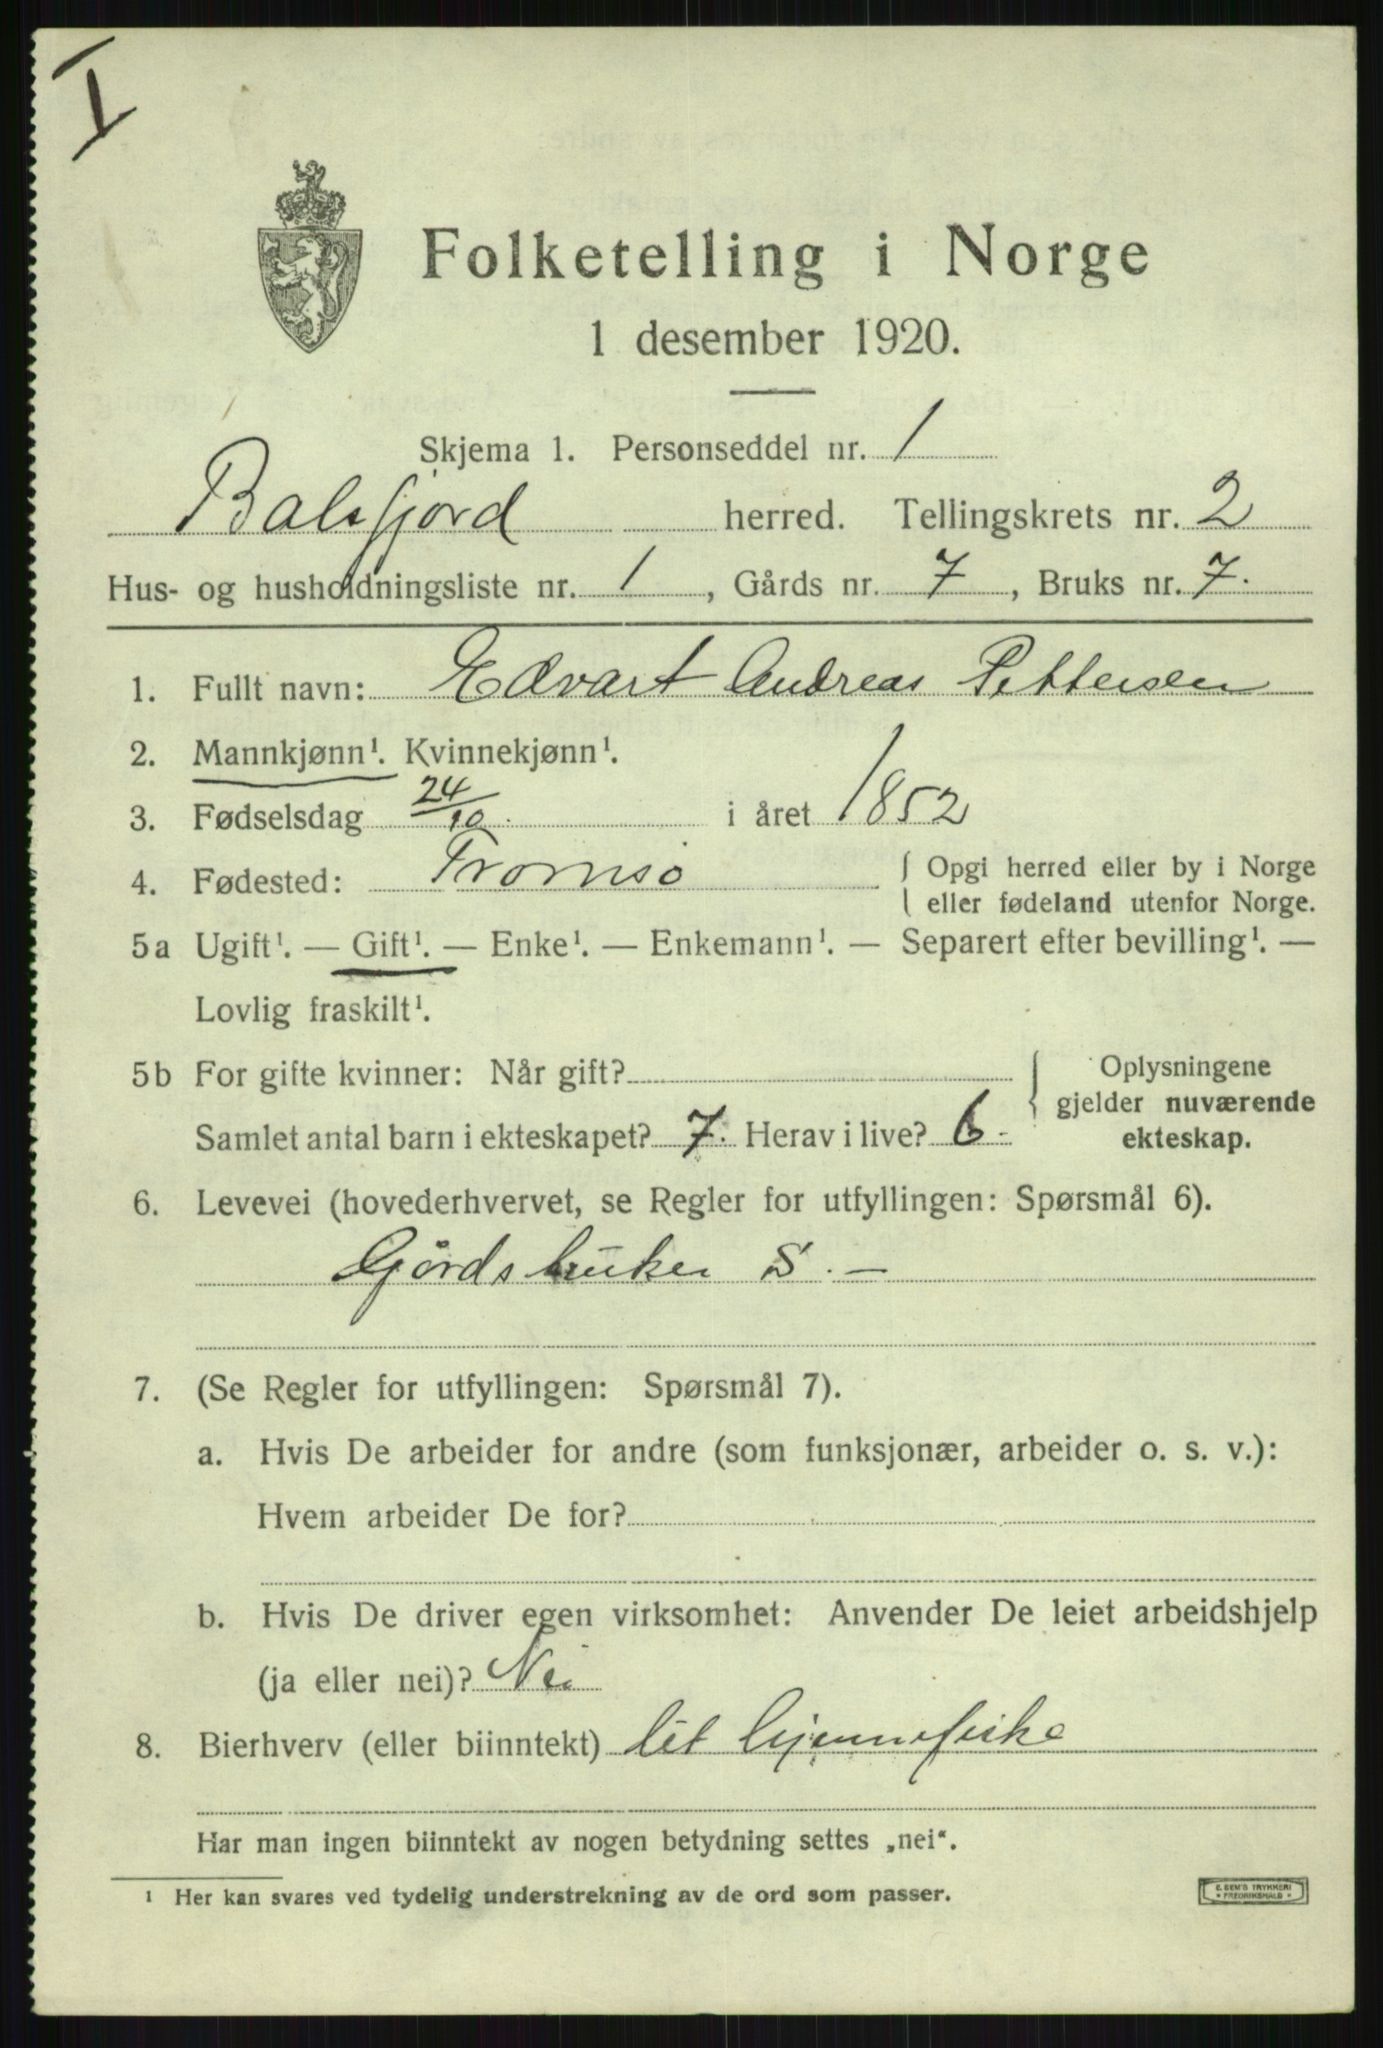 I
Folketelling i Norge
1 desember 1920.
Skjema 1. Personseddel nr. 1
Balsfjord herred. Tellingskrets nr. 2
Hus- og husholdningsliste nr. 1, Gårds nr. 7, Bruks nr. 7.
1. Fullt navn: Edvart Andreas Pettersen
2. Mannkjønn¹. Kvinnekjønn¹.
3. Fødselsdag 24/10. i året 1852
4. Fødested: Tromsø { Opgi herred eller by i Norge
eller fødeland utenfor Norge.
5a Ugift¹. — Gift¹. — Enke¹. — Enkemann¹. — Separert efter bevilling¹. —
Lovlig fraskilt¹.
5b For gifte kvinner: Når gift? { Oplysningene
gjelder nuværende
Samlet antal barn i ekteskapet? 7. Herav i live? 6. ekteskap.
6. Levevei (hovederhvervet, se Regler for utfyllingen: Spørsmål 6).
Gårdsbruker S. —
7. (Se Regler for utfyllingen: Spørsmål 7).
a. Hvis De arbeider for andre (som funksjonær, arbeider o. s. v.):
Hvem arbeider De for?
b. Hvis De driver egen virksomhet: Anvender De leiet arbeidshjelp
(ja eller nei)? Nei
8. Bierhverv (eller biinntekt) lit hjemmefiske
Har man ingen biinntekt av nogen betydning settes „nei“.
¹ Her kan svares ved tydelig understrekning av de ord som passer.
E. SEM'S TRYKKERI
• FREDRIKSHALD •